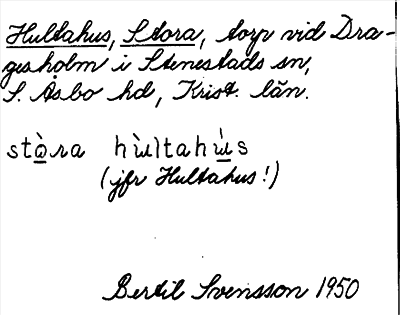 Hultahus, Stora, torp vid Dra-
gesholm i Stenestads sn,
S. Åsbo hd, Krist. län.
stò̱ra hùltahù̱s
(jfr Hultahus!)
Bertil Svensson 1950